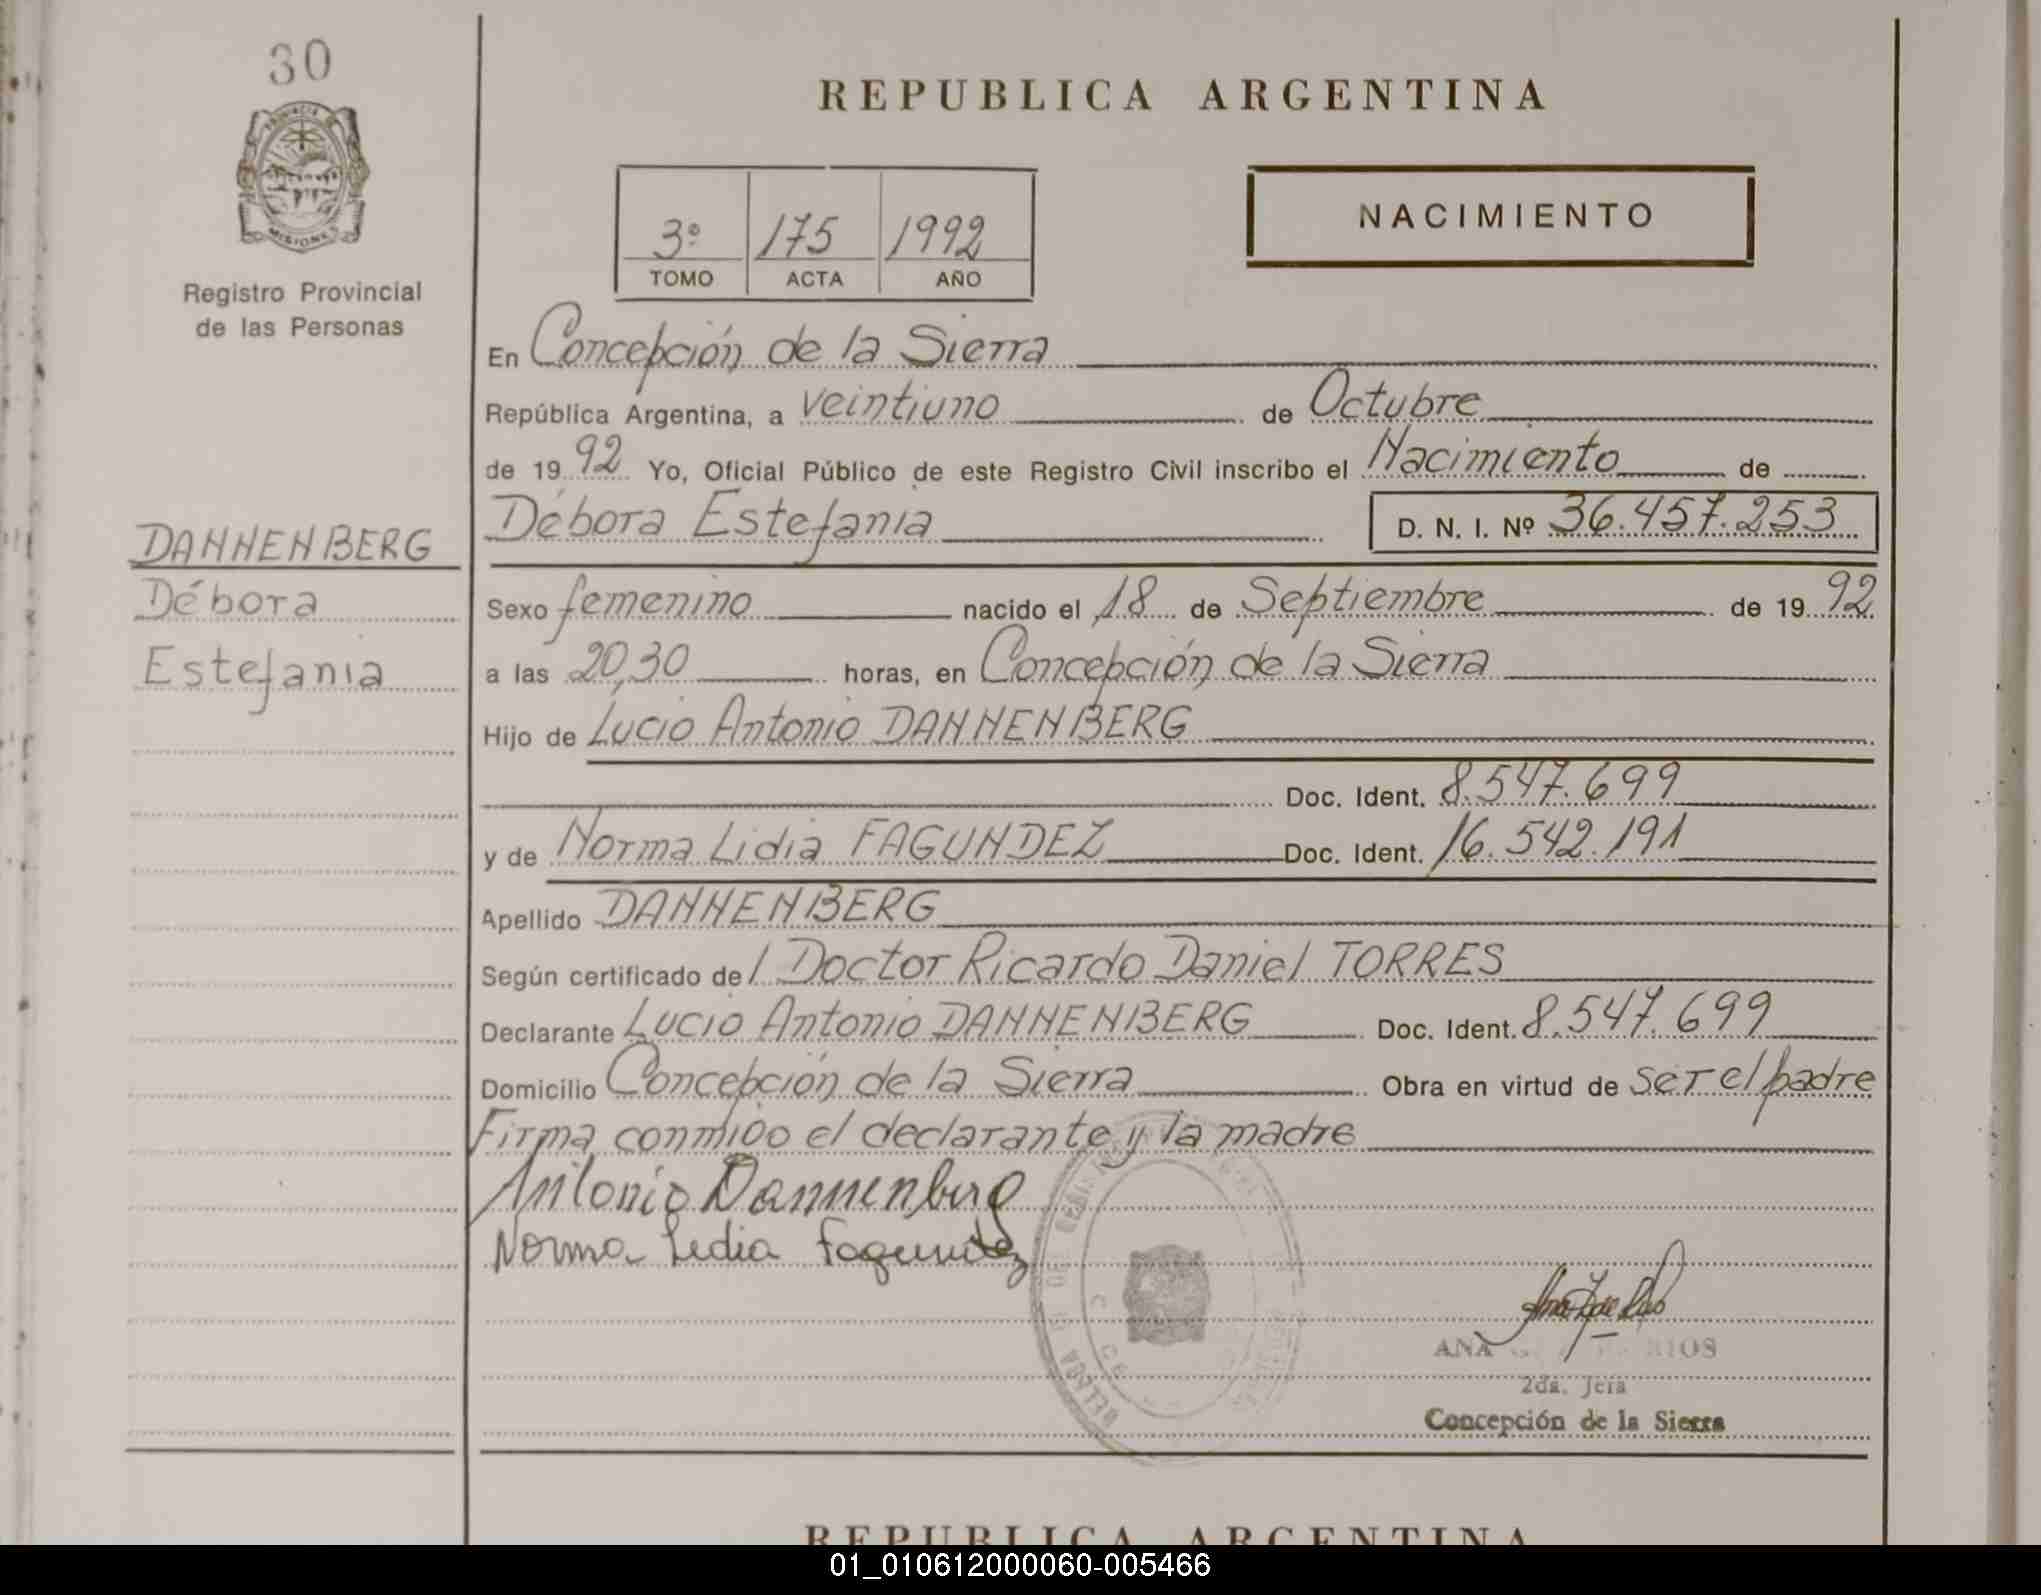 30
PROVINCIA DE
MISIONES
Registro Provincial
de las Personas
DANNENBERG
Débora
Estefania
REPUBLICA ARGENTINA
3º 175 1992
TOMO ACTA AÑO
NACIMIENTO
En Concepción de la Sierra
República Argentina, a veintiuno de Octubre
de 19 92 Yo, Oficial Público de este Registro Civil inscribo el Nacimiento de
Débora Estefania D. N. I. Nº 36.457.253
Sexo femenino nacido el 18 de Septiembre de 19 92
a las 20,30 horas, en Concepción de la Sierra
Hijo de Lucio Antonio DANNENBERG
Doc. Ident. 8.547.699
y de Norma Lidia FAGUNDEZ Doc. Ident. 16.542.191
Apellido DANNENBERG
Según certificado de l Doctor Ricardo Daniel TORRES
Declarante Lucio Antonio DANNENBERG Doc. Ident. 8.547.699
Domicilio Concepción de la Sierra Obra en virtud de ser el padre
Firma conmigo el declarante y la madre
Antonio Dannenberg
Norma Lidia Fagundez
ANA RIOS
2da. Jefa
Concepción de la Sierra
REPUBLICA ARGENTINA
01_010612000060-005466